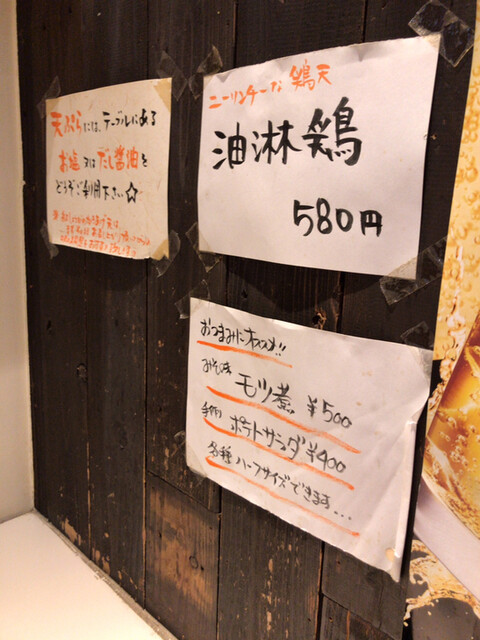 天ぷらには、テーブルにある
お塩 又は だし醤油を
どうぞご利用下さい☆
ニーリンチーな 鶏天
油淋鶏
580円
おつまみにオススメ!!
みそ味
モツ煮 ¥500
手作り ポテトサラダ ¥400
各種ハーフサイズできます...